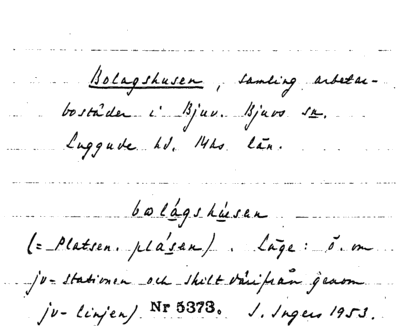 Bolagshusen, samling arbetar-
bostäder i Bjuv. Bjuvs sn.
Luggude hd. Mhs län.
bolágshúsen
(= Platsen. plásen). Läge: ö. om
jv-stationen och skilt därifrån genom
jv-linjen) Nr 5373. I. Ingers 1953.